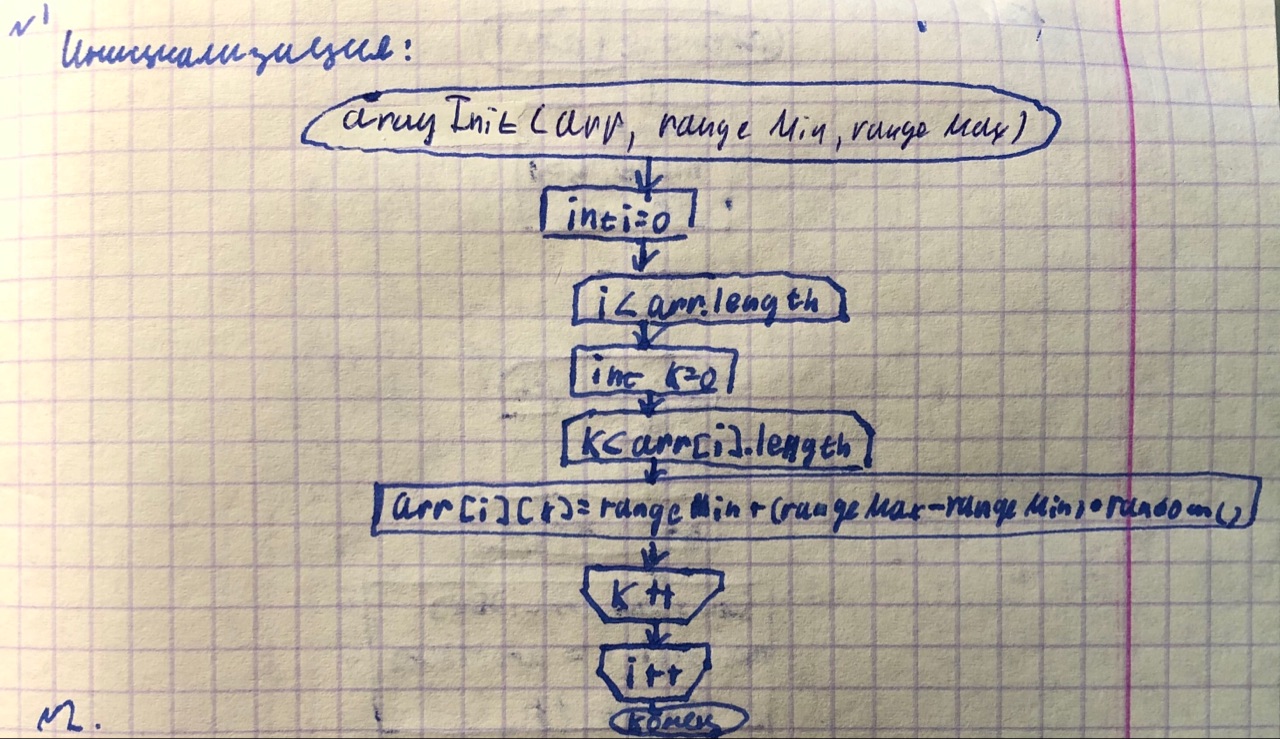 №1
Инициализация:
arayInit (arr, rangeMin, rangeMax)
int i=0
i < arr.length
int k=0
k<arr[i].length
arr[i][k]=rangeMin+(rangeMax-rangeMin)*random()
k++
i++
конец
№2.